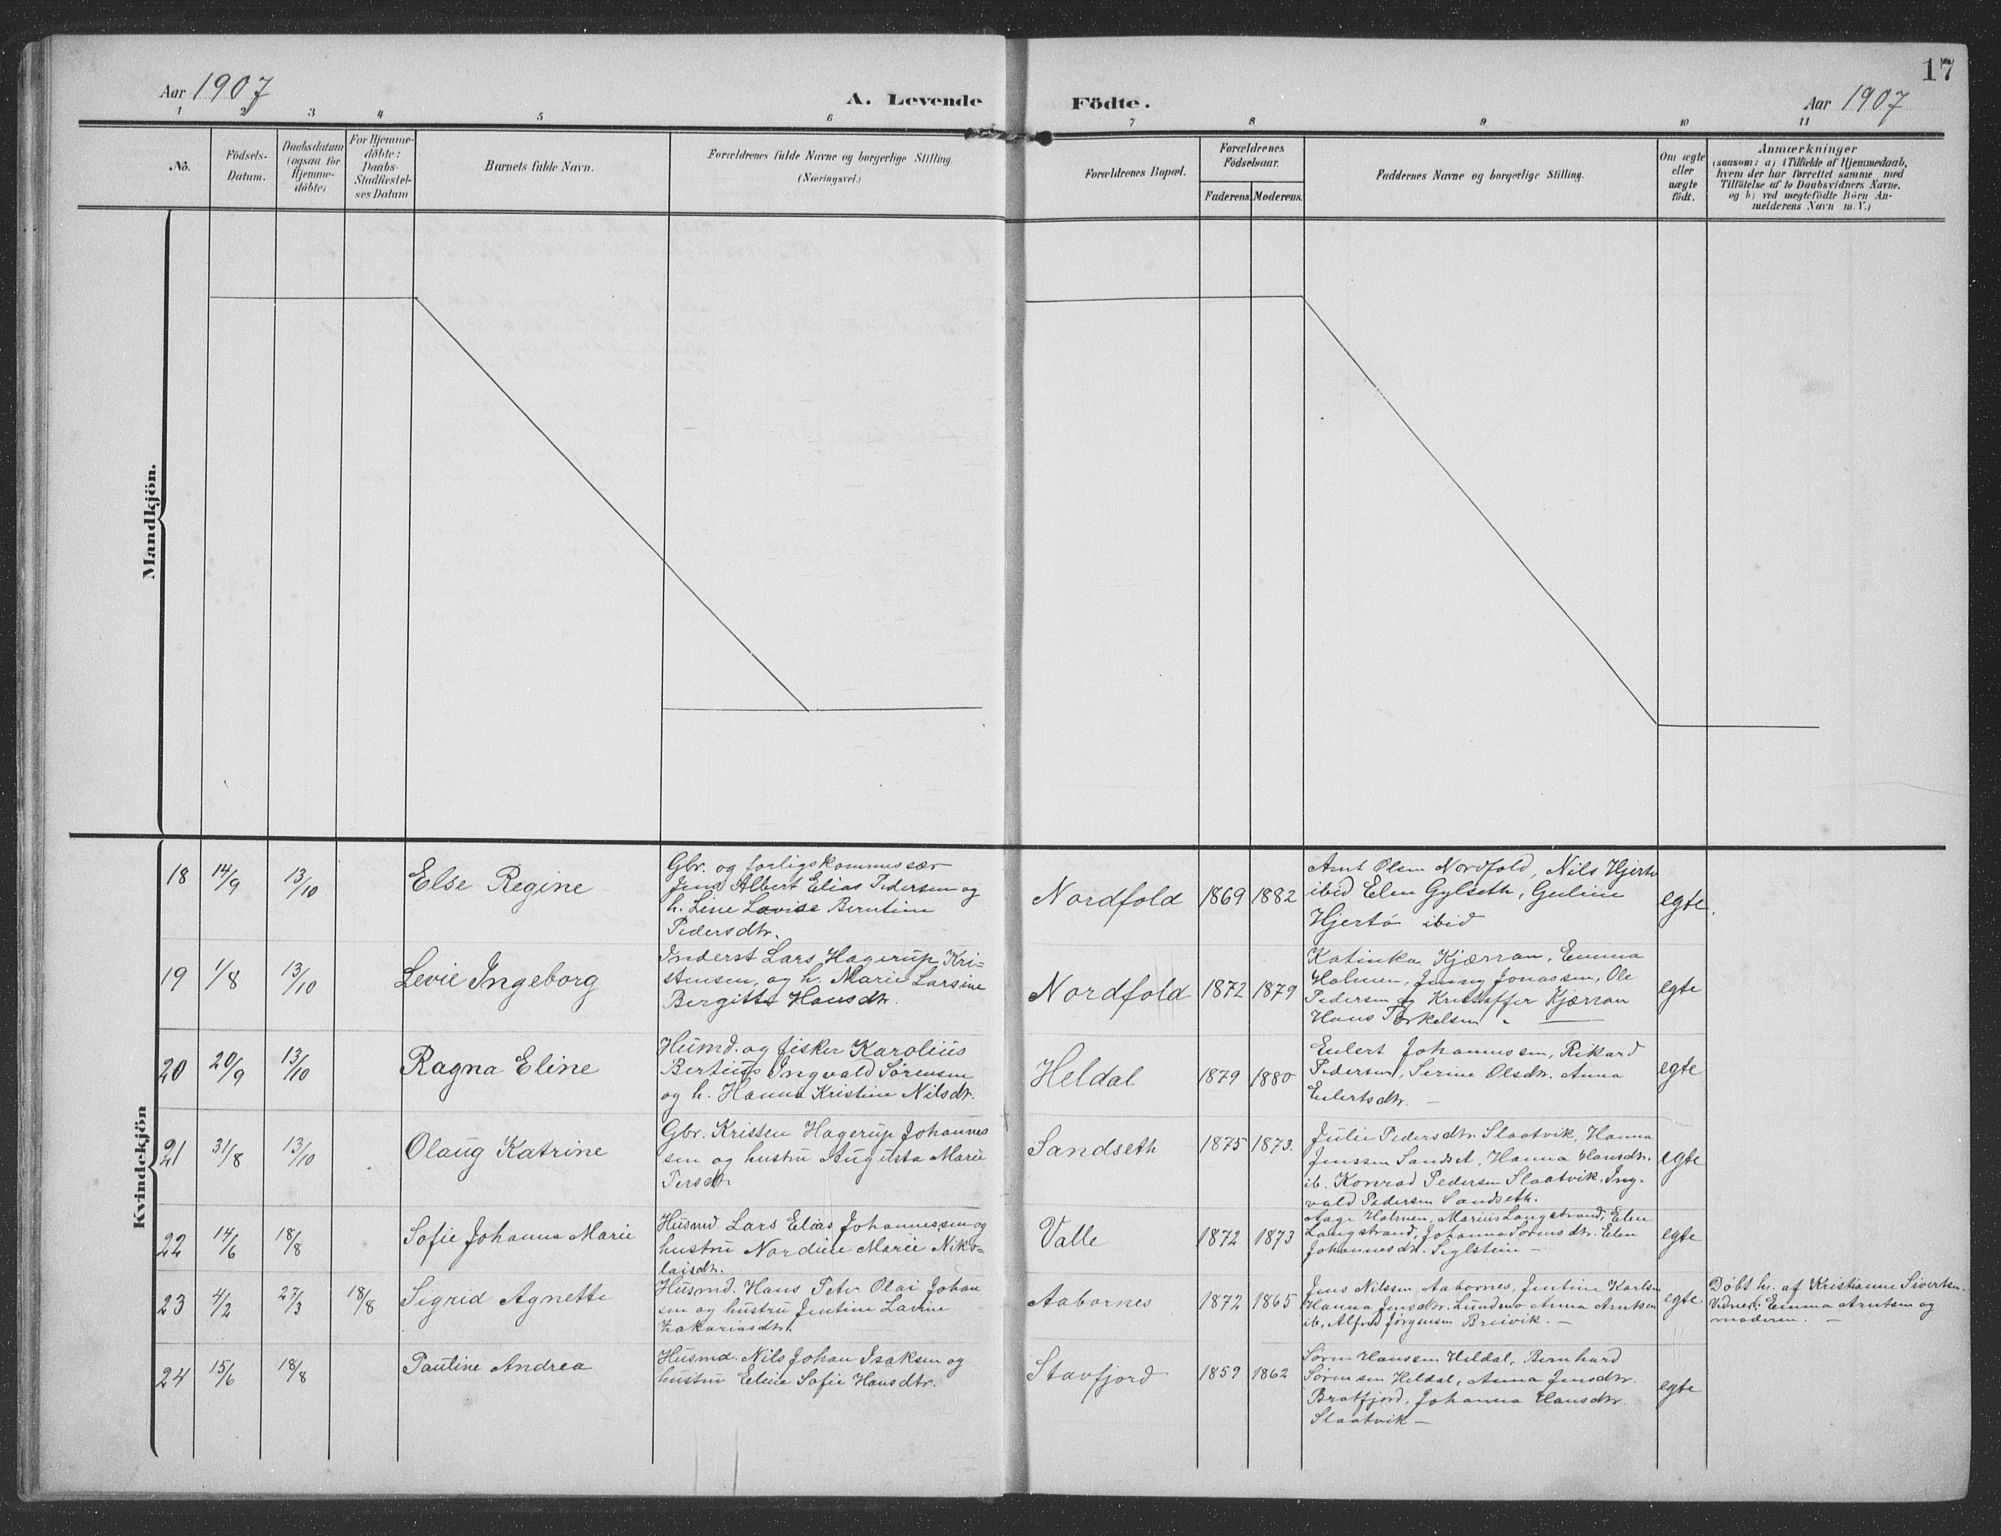 17
Aar 1907
A. Levende Födte.
Aar 1907
1 2 3 4 5 6 7 8 9 10 11
No.
Födsels-
Datum.
Daabsdatum
(ogsaa for
Hjemme-
döbte)
For Hjemme-
döbte:
Daabs-
Stadfestel-
ses Datum
Barnets fulde Navn.
Forældrenes fulde Navne og borgerlige Stilling.
(Næringsvei.)
Forældrenes Bopæl.
Forældrenes
Födselsaar.
Faderens. Moderens.
Faddernes Navne og borgerlige Stilling.
Om ægte
eller
uægte
födt.
Anmærkninger
(saasom: a) i Tilfælde af Hjemmedaab,
hvem der har forrettet samme, med
Tilföielse af to Daabsvidners Navne,
og b) ved uægtefödte Börn An-
melderens Navn m. V.)
Mandkjön.
Kvindekjön
18 14/9 13/10 Else Regine
Gbr. og forligskommissær
Jens Albert Elias Pedersen og
h. Line Lovise Berntine
Pedersdtr.
Nordfold 1869 1882
Arnt Olsen Nordfold, Nils Hjertø
ibid Elen Gylseth, Guline
Hjertø ibid
egte.
19 1/8 13/10 Levie Ingeborg
Inderst Lars Hagerup Kri-
stensen, og h. Marie Larsine
Bergitte Hansdtr.
Nordfold 1872 1879
Katinka Kjærran, Emma
Holmen, Jenny Jonassen, Ole
Pedersen og Kristoffer Kjærran
Hans Torkelsen
egte
20 20/9 13/10 Ragna Eline
Husmd. og fisker Karolius
Bertius Ingvald Sørensen
og h. Hanna Kristine Nilsdtr.
Heldal 1879 1880
Eilert Johannessen, Rikard
Pedersen, Serine Olsdtr. Anna
Eilertsdtr. –
egte
21 31/8 13/10 Olaug Katrine
Gbr. Kristen Hagerup Johannes
sen og hustru Augusta Marie
Persdtr
Sandseth 1875 1873.
Julie Pedersdtr Slaatvik, Hanna
Jenssen Sandset, Hanna Hansdtr.
ib. Konrad Pedersen Slaatvik, Ing-
vald Pedersen Sandseth.
egte
22 14/6 18/8 Sofie Johanna Marie
Husmd. Lars Elias Johannessen og
hustru Nordine Marie Niko-
laisdtr.
Valle 1872 1873
Aage Holmen, Marius Langstrand, Elen
Langstrand, Johanna Sørensdtr. Elen
Johannesdtr. Seglstein –
egte
23 4/2 27/3 18/8 Sigrid Agnette
Husmd. Hans Peter Olai Johan
sen og hustru Jentine Lavine
Zakariasdtr.
Aabornes 1872 1865
Jens Nilssen Aabornes, Jentine Karlsen
Hanna Jensdtr. Anna Arntsen
ib. Alfred Jørgensen Breivik. –
egte.
Døbt hj. af Kristianne Sivertsen.
Vidner: Emma Arntsen og
moderen. –
24 15/6 18/8 Pauline Andrea
Husmd. Nils Johan Isaksen og
hustru Eline Sofie Hansdtr.
Stavfjord 1859 1862
Søren Hanssen Heldal, Bernhard
Sørensen Heldal, Anna Jensdtr.
Bratfjord, Johanna Hansdtr.
Slaatvik –
egte